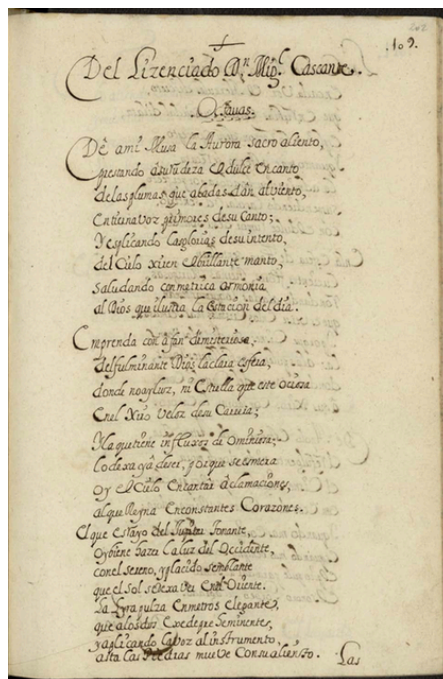 109.
Del Lizenciado Dn. Migl. Cascante.
Octauas.
Dè a mi Musa la Aurora sacro aliento,
prestando à su rudeza el dulce encanto
de las plumas, que aladas dàn al viento,
en tierna voz primores de su Canto;
Y esplicando las glorias de su intento,
del Cielo Xiren el brillante manto,
saludando con metrica armonia
al Dios que ilustra la estacion del dia.
Emprenda con afan
del fulminante Dios la clara esfera,
donde no ay luz, ni Estrella que este ociosa
en el Xiro veloz de su Carrera;
Ya que tiene influxos
lo dexa yà de ser, porque se esmera
oy el Cielo en cantar àclamaciones,
al que Reyna en constantes Corazones.
El que es rayo del Jupiter tonante,
oy viene hazer la luz del Occidente,
con el sereno, y placido semblante
que el Sol se dexa ver en el Oriente.
La Lyra pulza en metros elegante,
que a los dos Exes deje eminentes,
y aplicando la voz al instrumento,
asta las Piedras mueve con su aliento.
Las